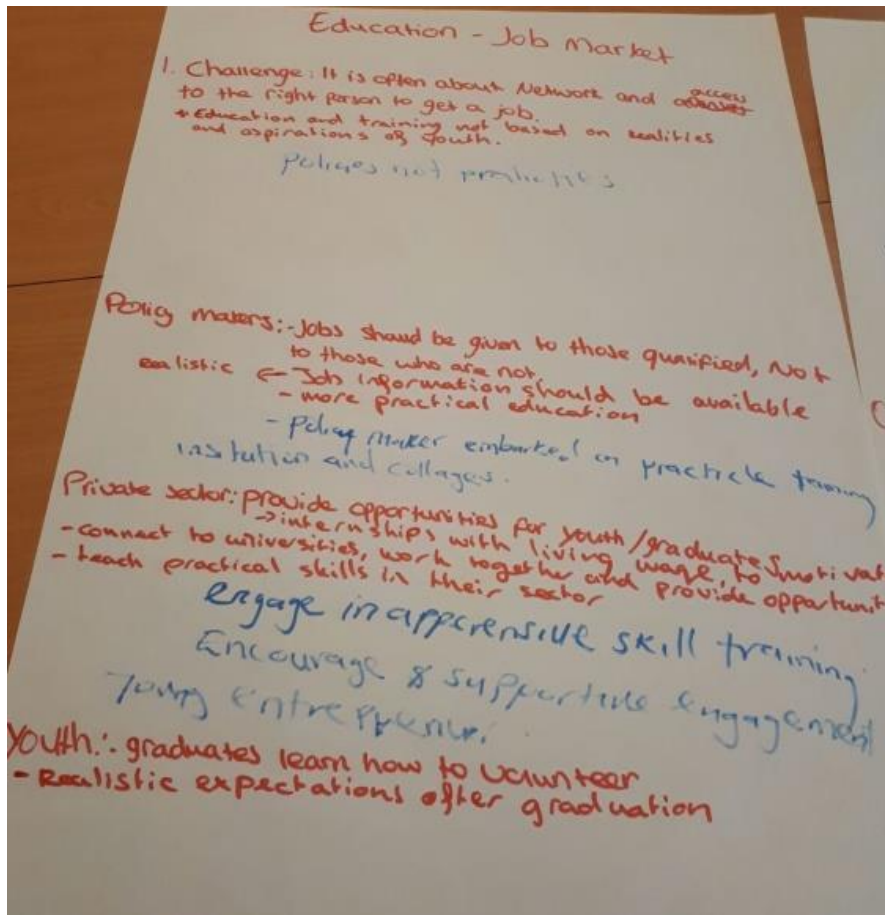 Education - Job Market
1. Challenge: It is often about Network and access
to the right person to get a job.
+ Education and training not based on realities
and aspirations of youth.
Policies not
Policy makers:-Jobs should be given to those qualified, Not
to those who are not
ealistic ← Job information should be available
- more practical education
- Policy maker embarked on practicle training
insitution and collages.
Private sector: provide opportunities for youth/graduates
→ internships with living wage, to motivat
- connect to universities, work together and provide opportunit
- teach practical skills in their sector
engage in apperensive skill training
Encourage & supportive engagement
young
Youth: graduates learn how to volunteer
- Realistic expectations after graduation